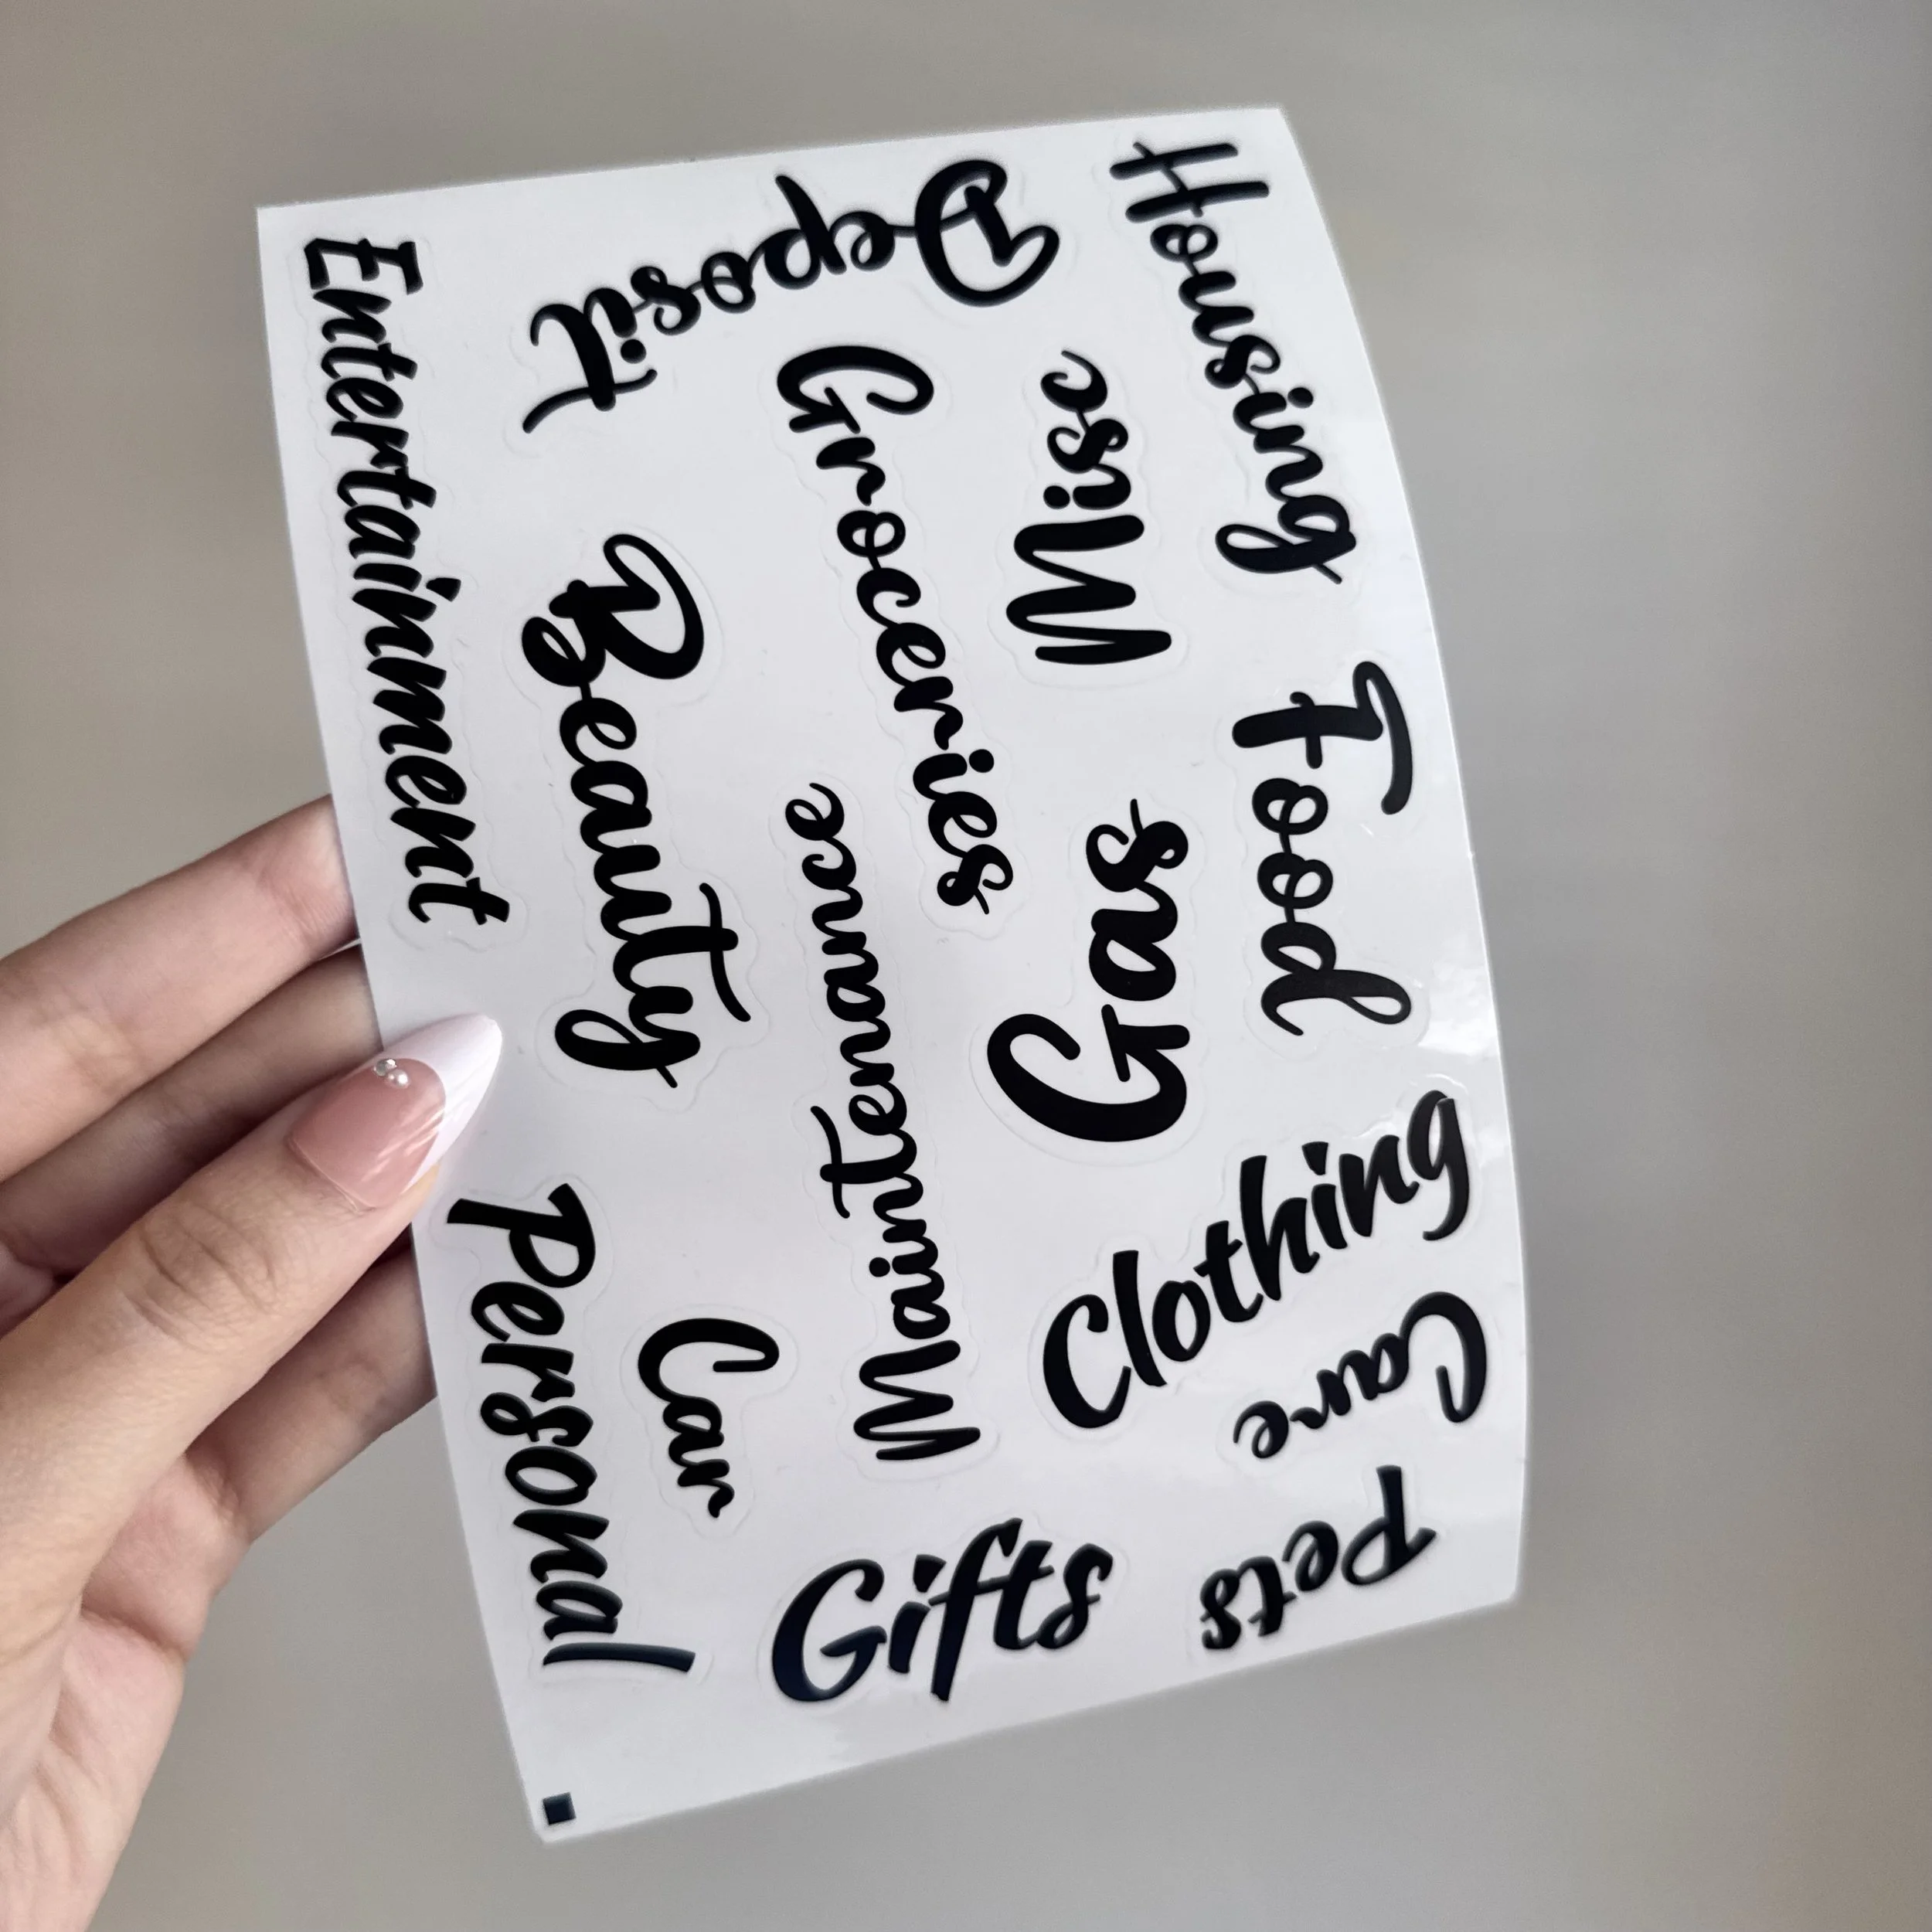 Housing
Deposit
Entertainment
Misc
Groceries
Beauty
Food
Gas
Maintenance
Clothing
Care
Personal
Car
Pets
Gifts